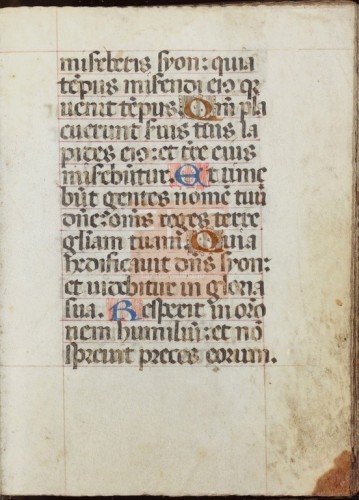 miseberis syon: quia
tēpus misendi ei⁹ q̄
uenit tēpus. Qm̄ pla
cuerunt suis tuis la
pides ei⁹: et t̄re eius
misebūtur. Et time
būt gentes nomē tuū
dn̄e: om̄s reges terre
gl̄iam tuam̄. Quia
hedificauit dn̄s syon:
et uidebitur in gloria
sua. Respexit in oro
nem humiliū: et nō
spreuit preces eorum.